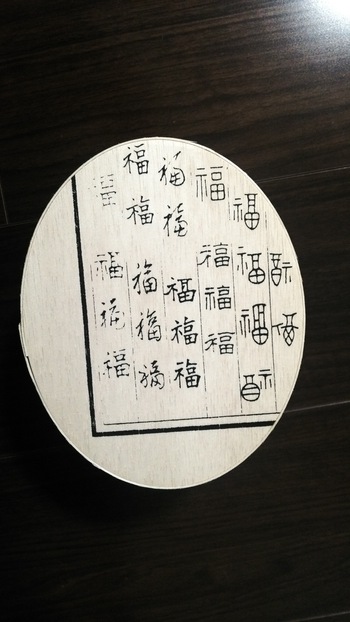 福福
福福福福
福福福福
福福福福福
福福福福福
福福福福